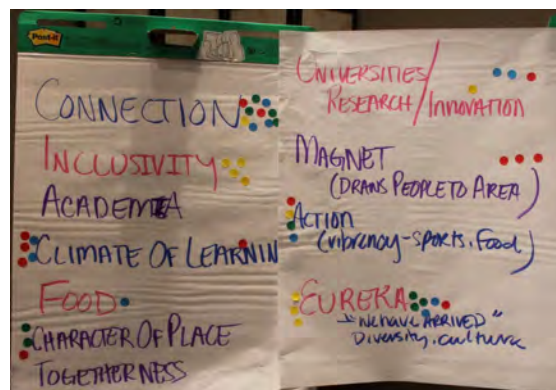 Post-it
CONNECTION
INCLUSIVITY
ACADEMIA
CLIMATE OF LEARNIN
FOOD
CHARACTER OF PLACE
TOGETHERNESS
UNIVERSITIES/
RESEARCH/INNOVATION
MAGNET
(DRANS PEOPLE TO AREA)
ACTION
(vibrency-sports, Food)
EUREKA
"We have ARRIVED"
Diversity, culture